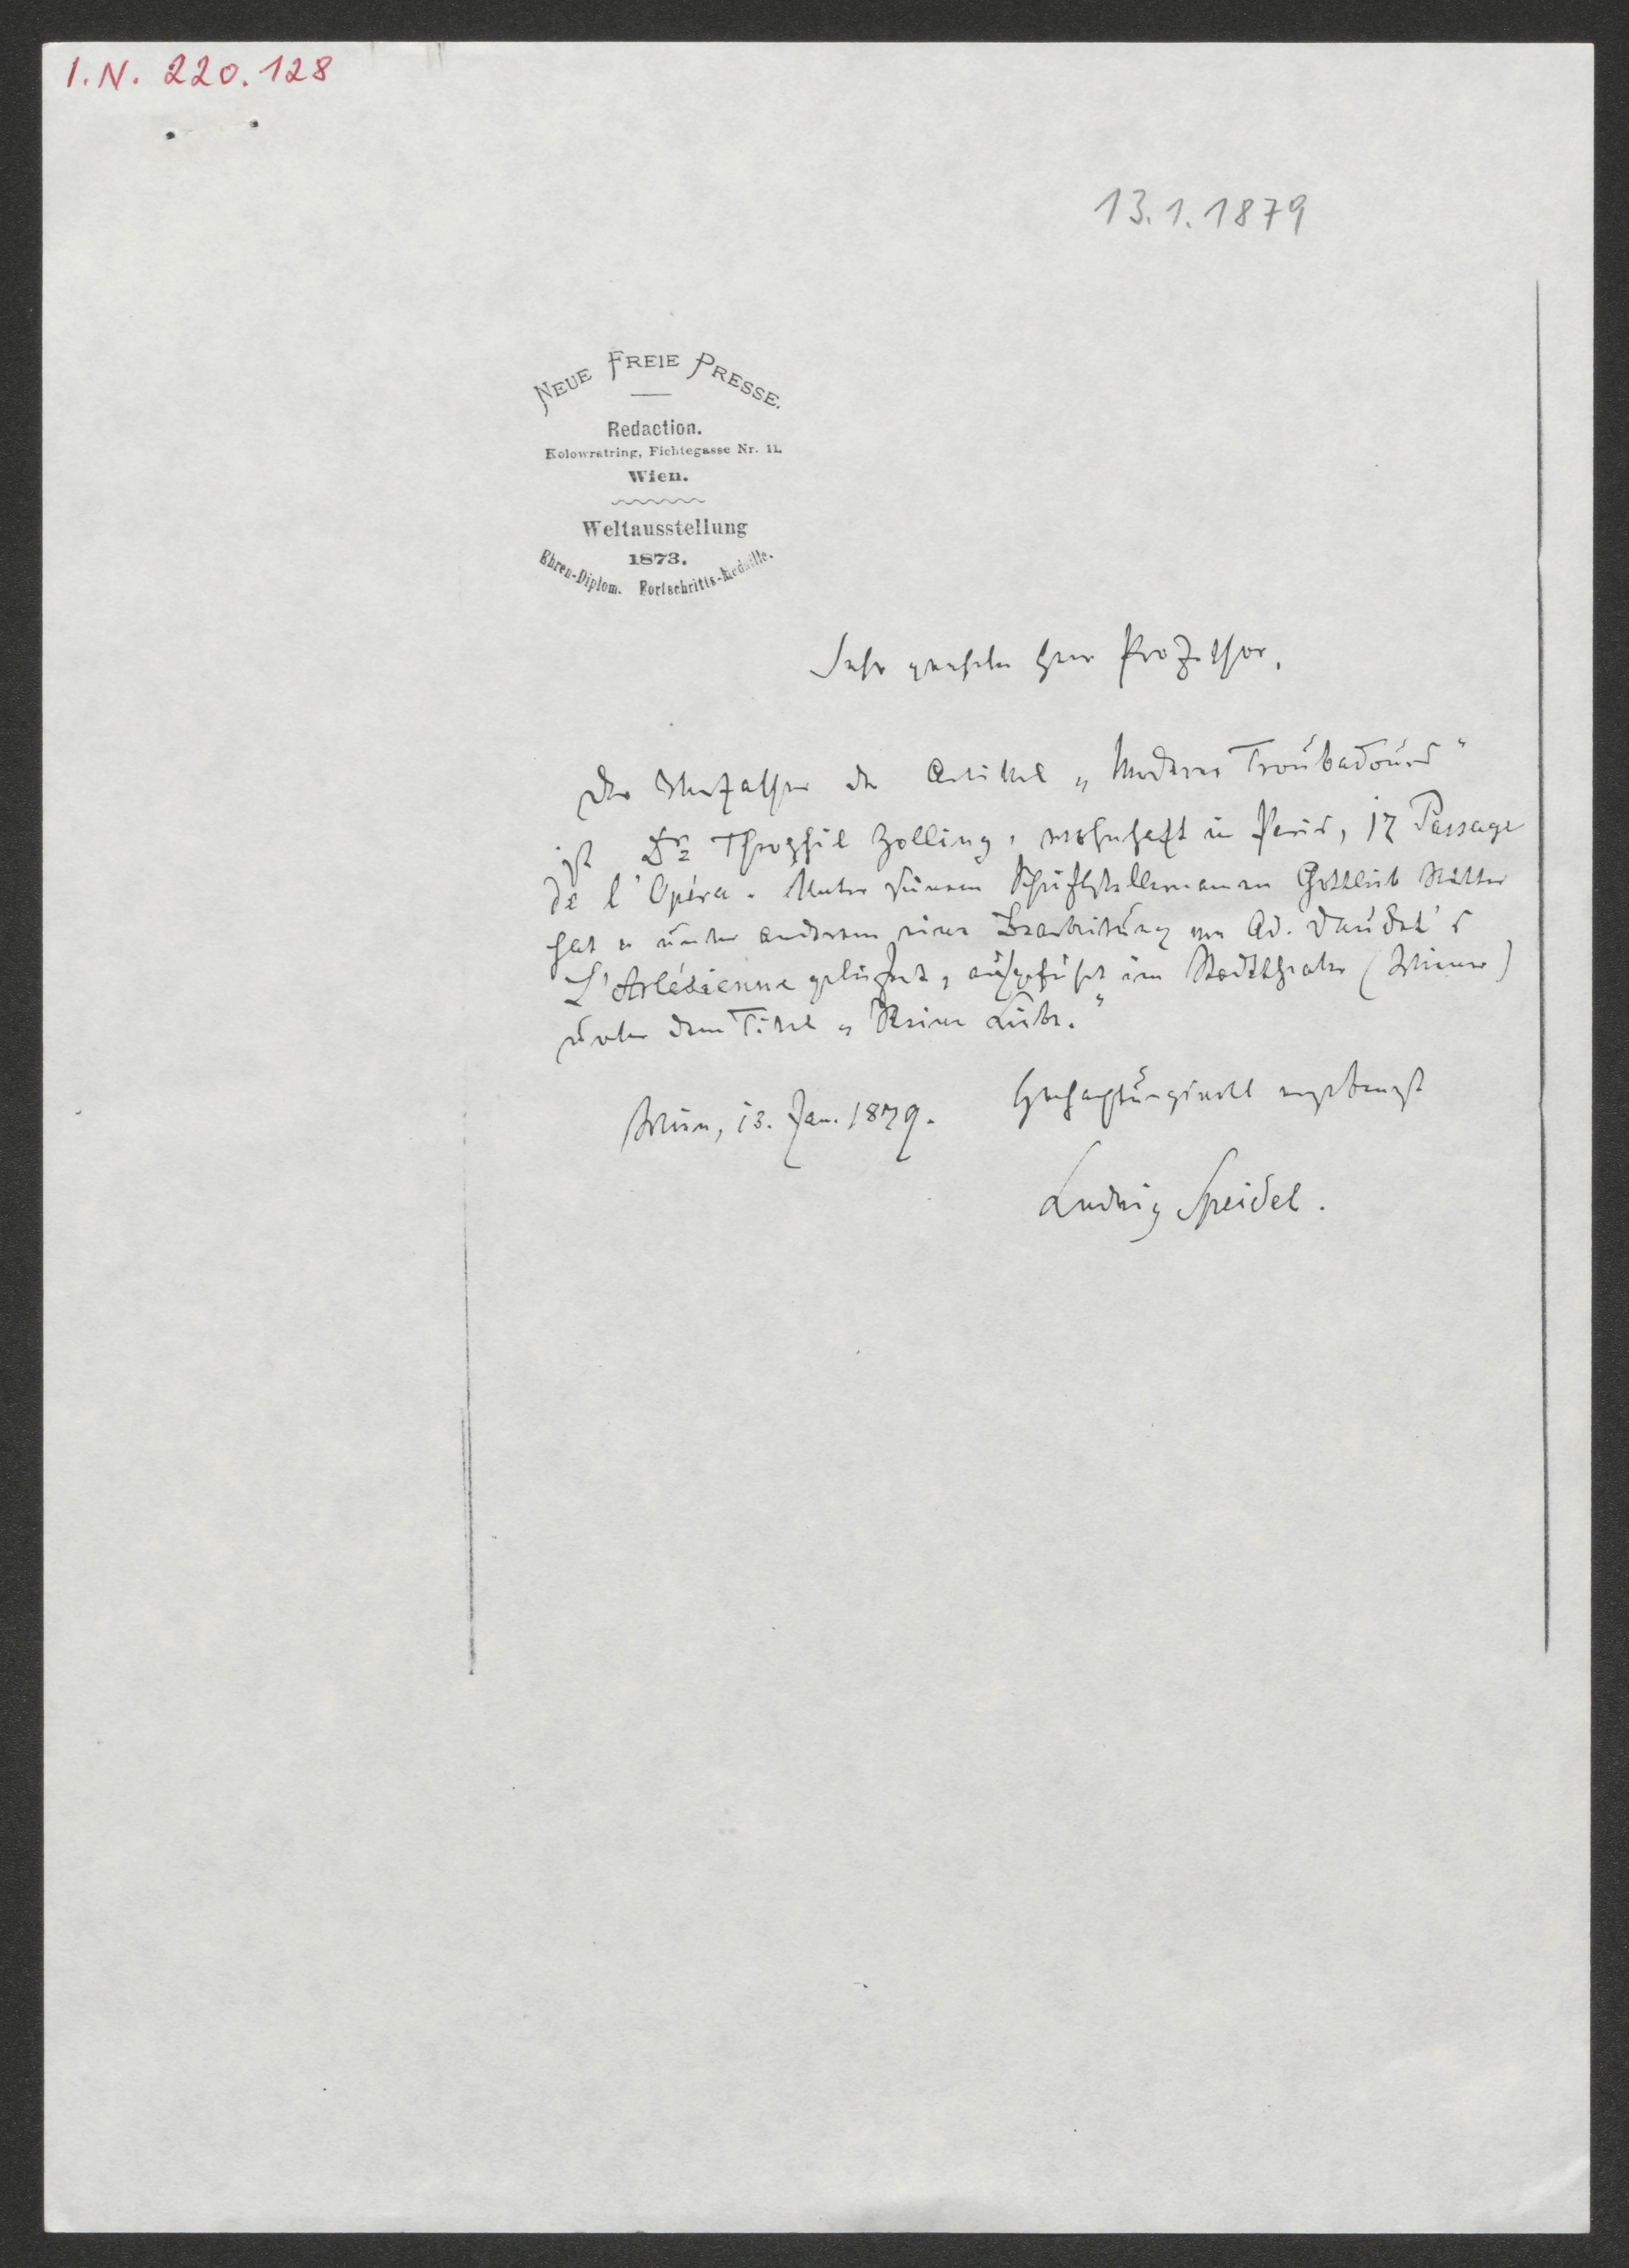 I.N. 220.128
13.1.1879
NEUE FREIE PRESSE.
Redaction.
Kolowratring, Fichtegasse Nr. 11.
Wien.
Weltausstellung
1873.
Ehren-Diplom. Fortschritts-Medaille.
Sehr geehrter Herr Professor,
Der Verfasser der Artikel „Moderne Troubadours"
ist Dr. Theophil Zolling, wohnhaft in Paris, 17 Passage
de l'Opéra. Unter seinem Schriftstellernamen Gottlieb Ritter
hat er unter anderem eine Bearbeitung von Ad. Daudet's
L'Arlésienne geliefert, aufgeführt im Stadttheater (Wiener)
unter dem Titel „Neue Liebe."
Hochachtungsvoll ergebenst
Wien, 13. Jan. 1879.
Ludwig Speidel.